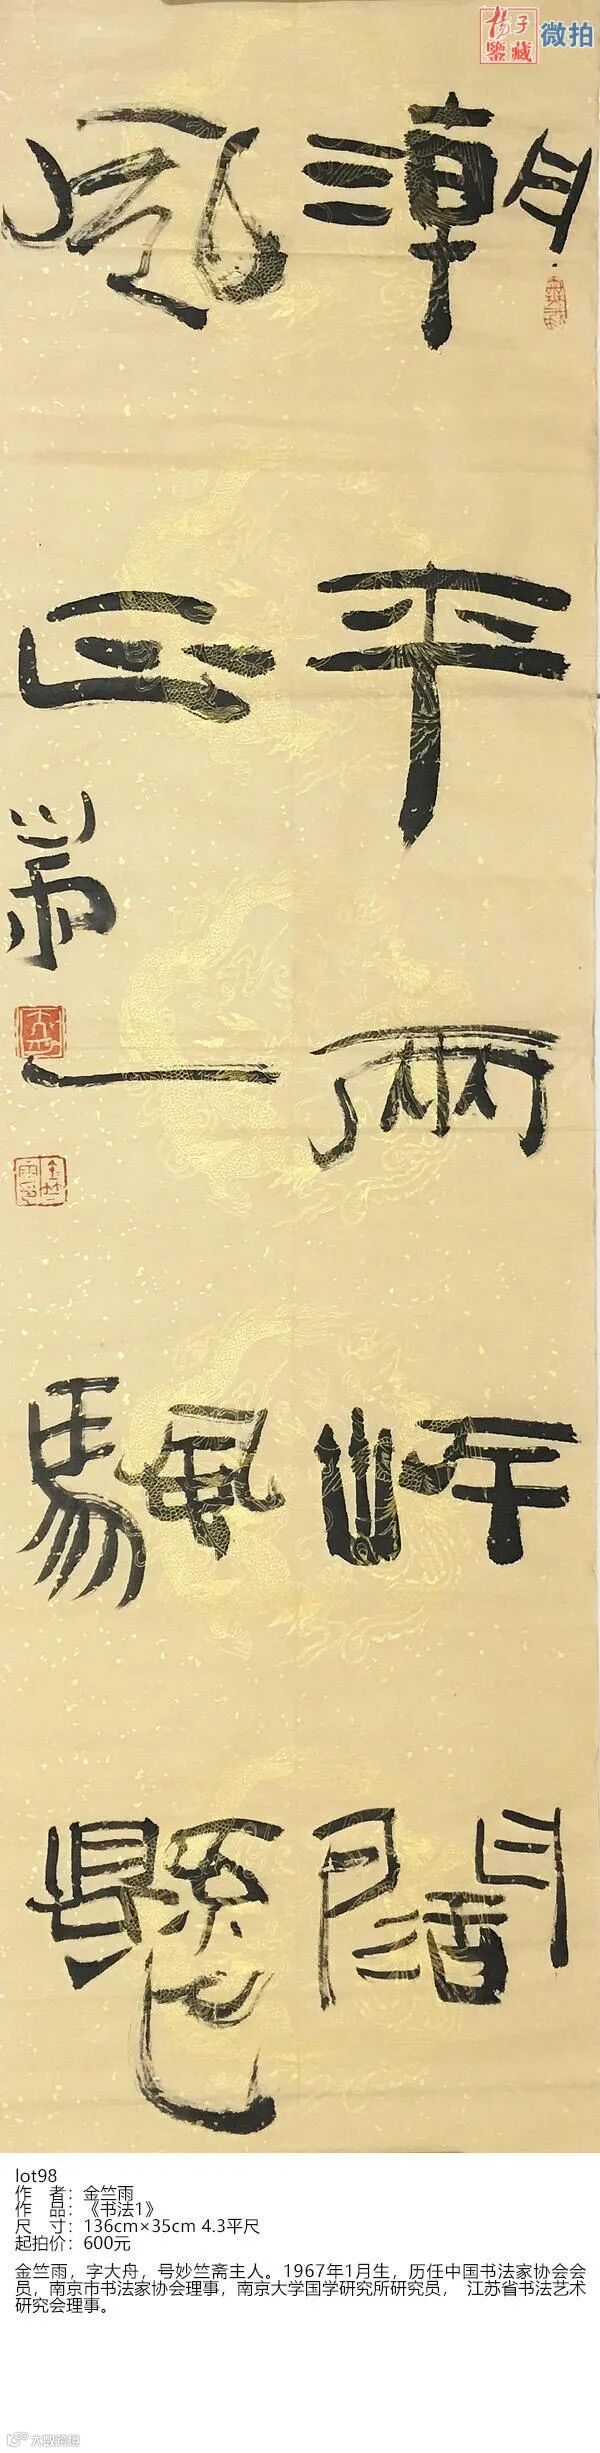 杨子
鉴藏
微拍
潮平兩岸闊
風正一颿懸
lot98
作 者：金竺雨
作 品：《书法1》
尺 寸：136cm×35cm 4.3平尺
起拍价：600元
金竺雨，字大舟，号妙竺斋主人。1967年1月生，历任中国书法家协会会
员，南京市书法家协会理事，南京大学国学研究所研究员， 江苏省书法艺术
研究会理事。